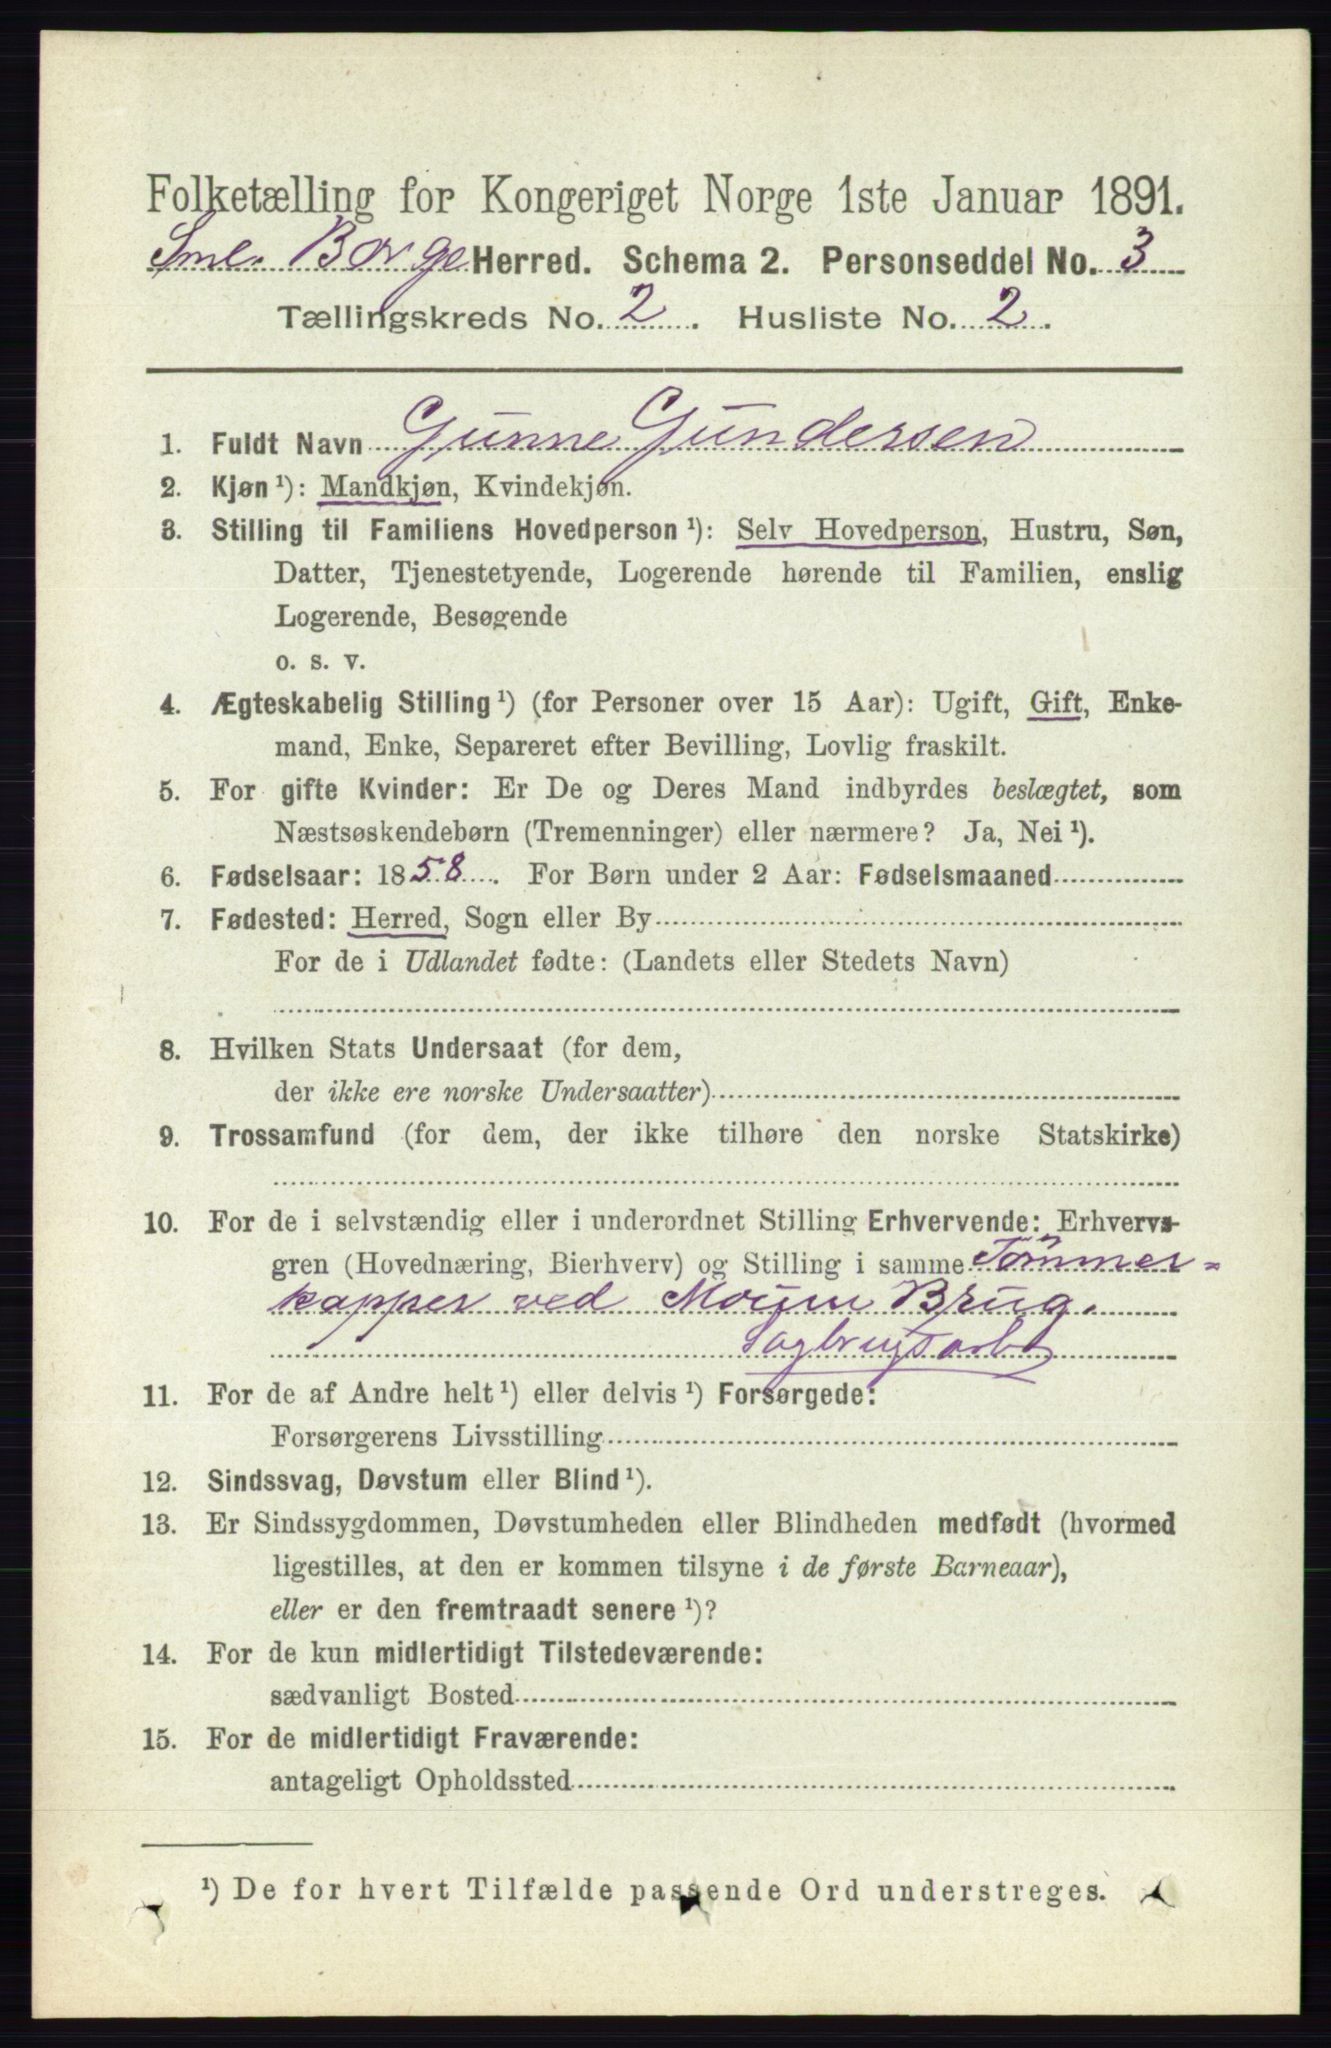 Folketælling for Kongeriget Norge 1ste Januar 1891.
Sml. Borge Herred. Schema 2. Personseddel No. 3
Tællingskreds No. 2. Husliste No. 2.
1. Fuldt Navn Gunne Gundersen
2. Kjøn ¹): Mandkjøn, Kvindekjøn.
3. Stilling til Familiens Hovedperson ¹): Selv Hovedperson, Hustru, Søn,
Datter, Tjenestetyende, Logerende hørende til Familien, enslig
Logerende, Besøgende
o. s. v.
4. Ægteskabelig Stilling ¹) (for Personer over 15 Aar): Ugift, Gift, Enke-
mand, Enke, Separeret efter Bevilling, Lovlig fraskilt.
5. For gifte Kvinder: Er De og Deres Mand indbyrdes beslægtet, som
Næstsøskendebørn (Tremenninger) eller nærmere? Ja, Nei ¹).
6. Fødselsaar: 1858. For Børn under 2 Aar: Fødselsmaaned
7. Fødested: Herred, Sogn eller By
For de i Udlandet fødte: (Landets eller Stedets Navn)
8. Hvilken Stats Undersaat (for dem,
der ikke ere norske Undersaatter)
9. Trossamfund (for dem, der ikke tilhøre den norske Statskirke)
10. For de i selvstændig eller i underordnet Stilling Erhvervende: Erhvervs-
gren (Hovednæring, Bierhverv) og Stilling i samme Tømmer-
kapper ved Moum Brug.
Sagbrugsarb
11. For de af Andre helt ¹) eller delvis ¹) Forsørgede:
Forsørgerens Livsstilling
12. Sindssvag, Døvstum eller Blind ¹).
13. Er Sindssygdommen, Døvstumheden eller Blindheden medfødt (hvormed
ligestilles, at den er kommen tilsyne i de første Barneaar),
eller er den fremtraadt senere ¹)?
14. For de kun midlertidigt Tilstedeværende:
sædvanligt Bosted
15. For de midlertidigt Fraværende:
antageligt Opholdssted
¹) De for hvert Tilfælde passende Ord understreges.